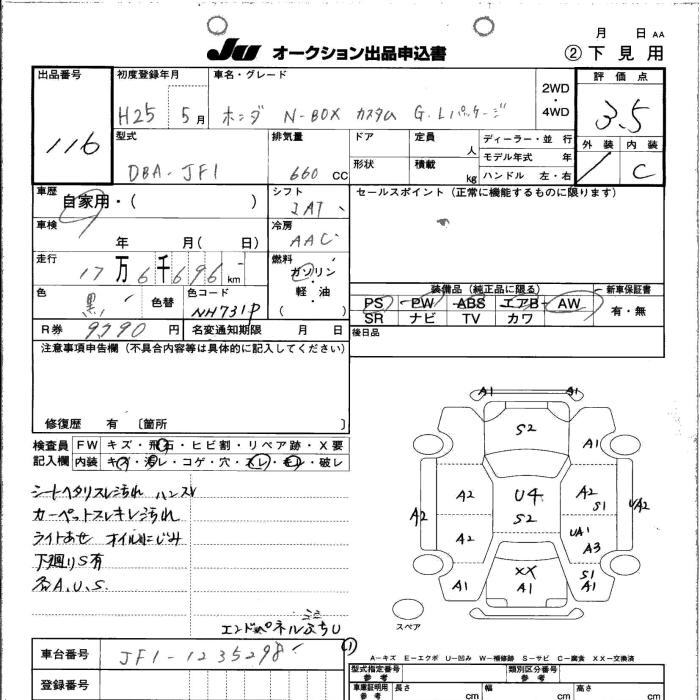 月 日 AA
JU オークション出品申込書 ② 下見用
出品番号 116
初度登録年月 H25 5月
車名・グレード ホンダ N-BOX カスタム G.Lパッケージ
2WD・4WD
評価点 3.5
外装 内装 C
型式 DBA-JF1
排気量 660 CC
ドア 定員 人
形状 積載 kg
ディーラー・並行
モデル年式 年
ハンドル 左・右
車歴 自家用・( )
シフト IAT
セールスポイント(正常に機能するものに限ります)
車検 年 月( 日)
冷房 AAC
走行 17万6千696km
燃料 ガソリン・軽油 ( )
色 黒 色替
色コード NH731P
装備品(純正品に限る) 新車保証書
PS PW ABS エアB AW 有・無
SR ナビ TV カワ
R券 9790円 名変通知期限 月 日
後日品
注意事項申告欄(不具合内容等は具体的に記入してください)
修復歴 有 〔箇所 〕
検査員記入欄
FW キズ・飛石・ヒビ割・リペア跡・X要
内装 キズ・汚レ・コゲ・穴・スレ・モレ・破レ
シートヘタリスレ汚れ ハンスレ
カーペットスレキレ汚れ
ライトあせ オイルにじみ
下廻りS有
各A.U.S.
エンドパネルふちU
A1 A1
S2
A1
A2 U4 A2 S1
A2 S2 U/A2
A2 UA1 A3
XX S1
A1 A1 A1
スペア
車台番号 JF1-1235298
登録番号
A-キズ E-エクボ U-凹み W-補修跡 S-サビ C-腐食 XX-交換済
型式指定番号 参考
類別区分番号 参考
車庫証明用 参考 長さ cm 幅 cm 高さ cm